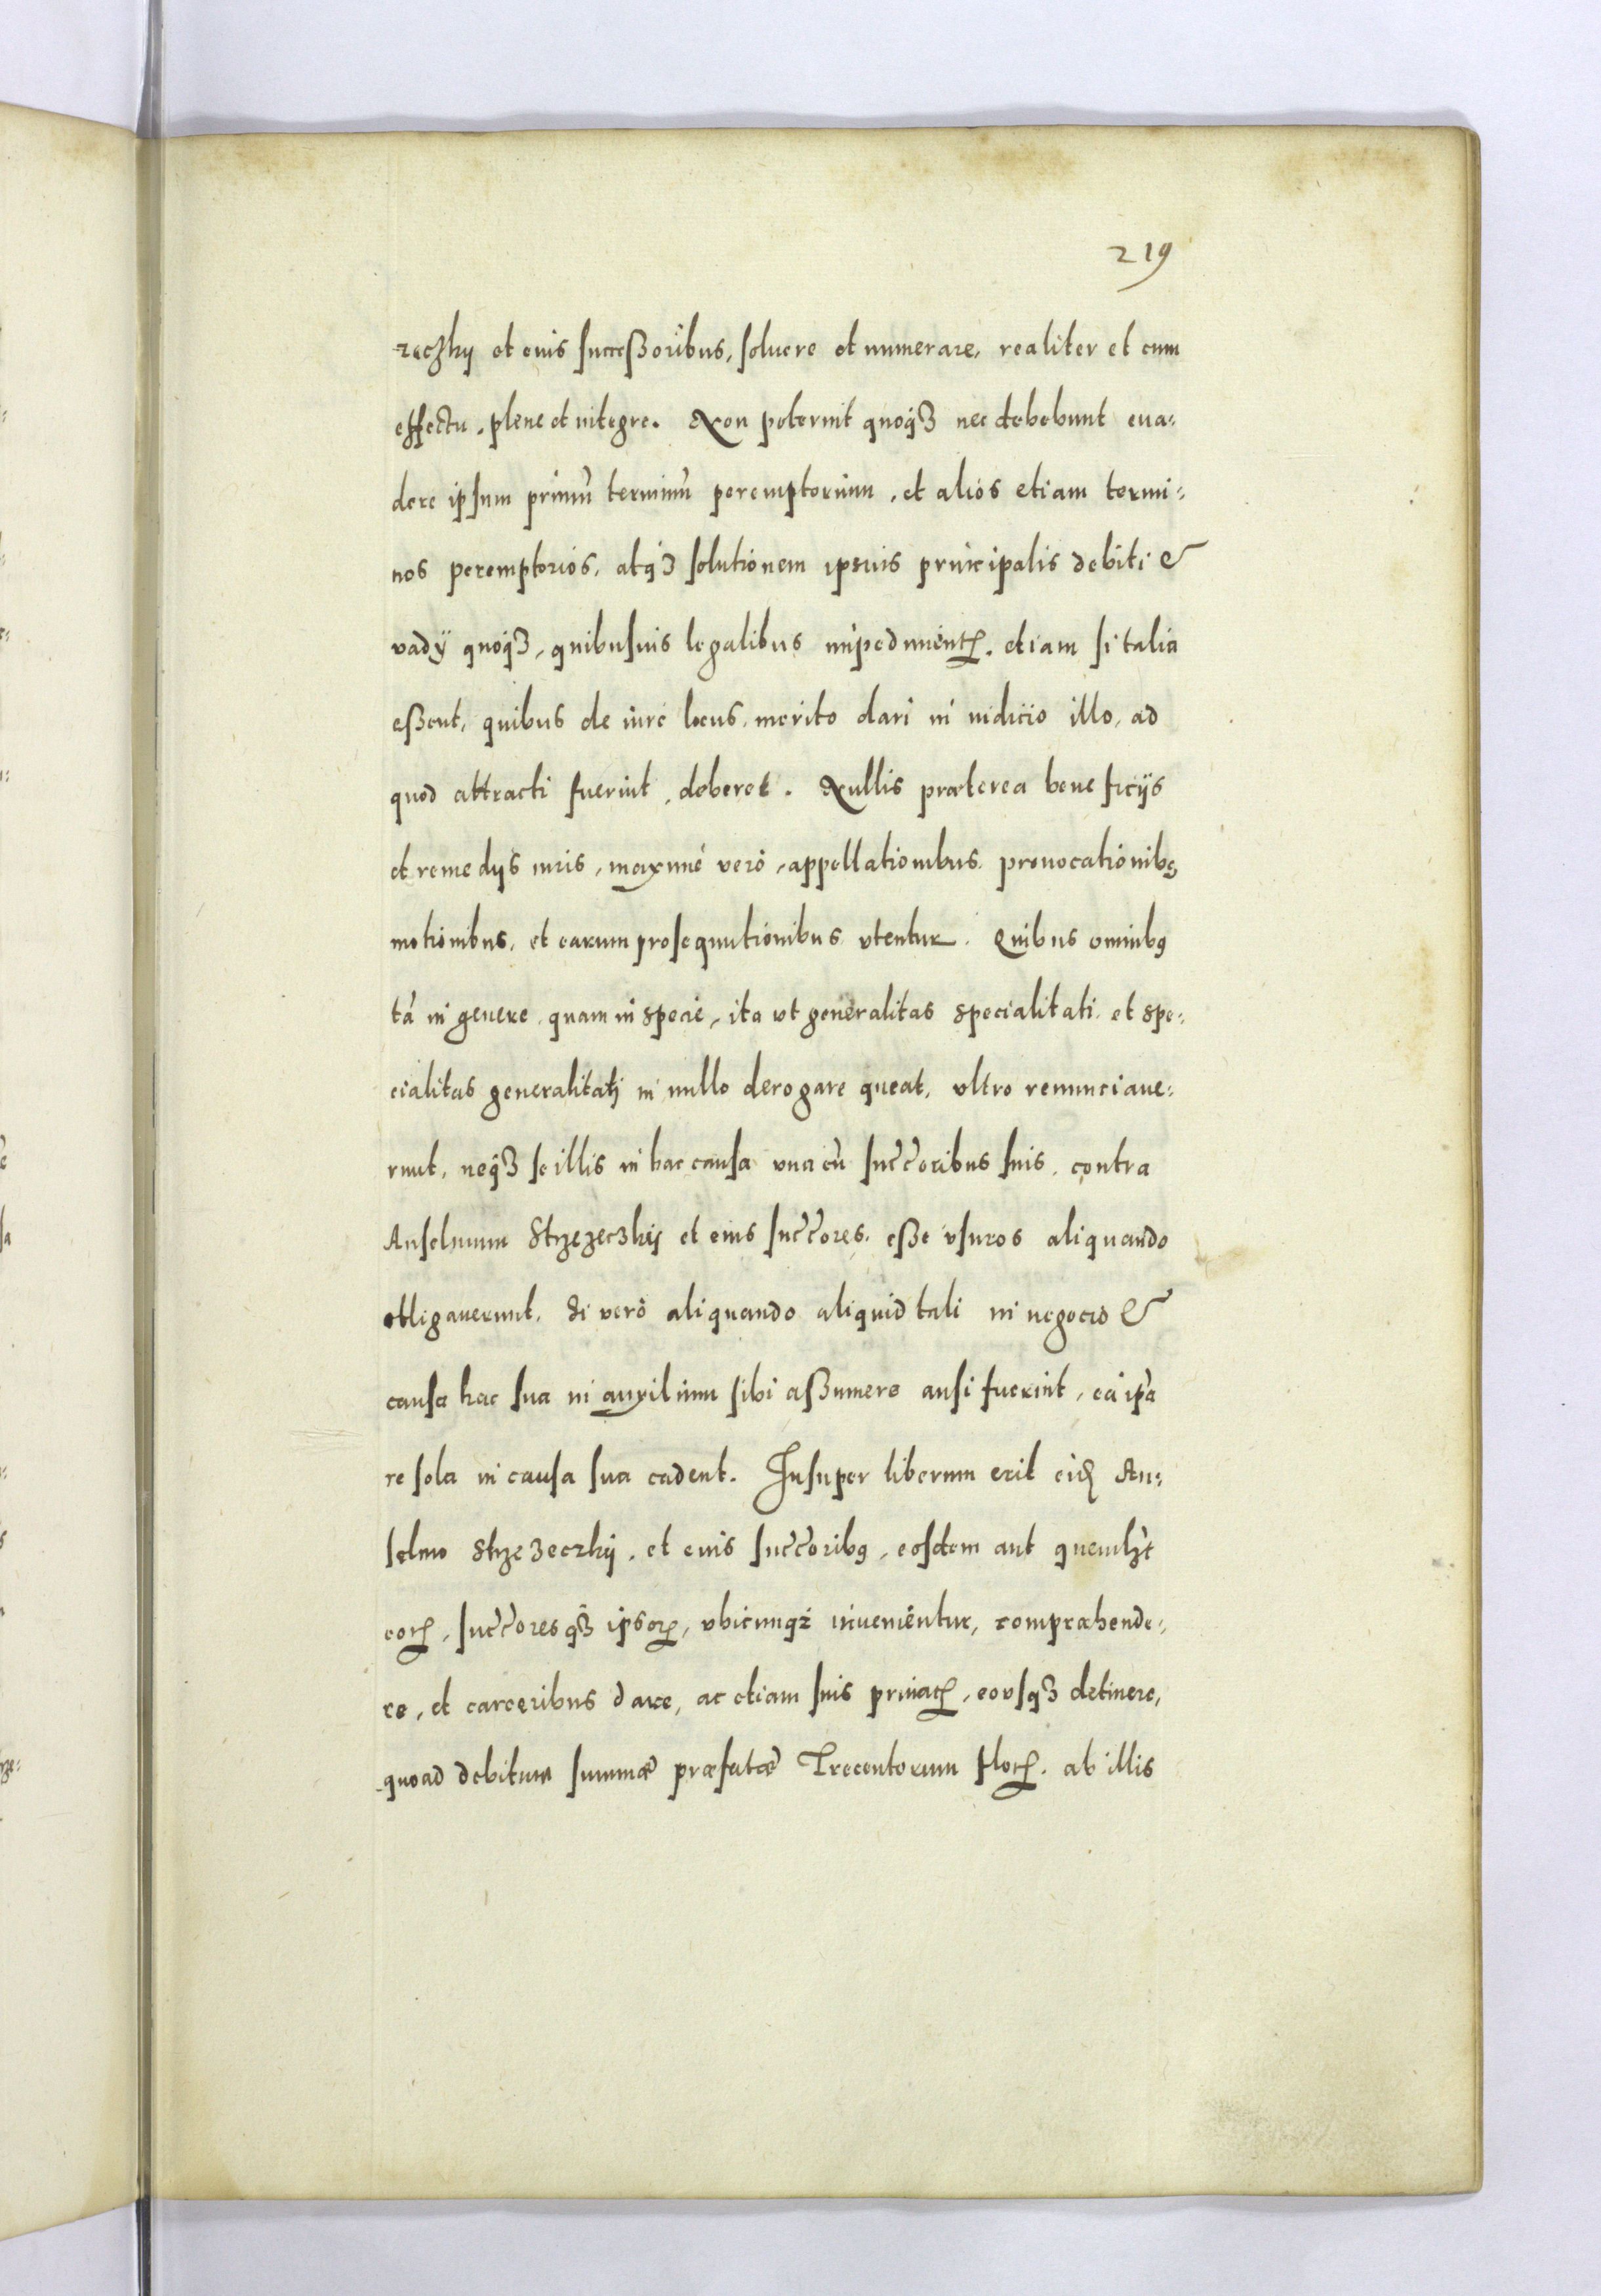 219
zeczkij et eius successoribus, soluere et numerare, realiter et cum
effectu, plene et integre. Non poterint quoqȝ nec debebunt eua-
dere ipsum primũ terminũ peremptorium, et alios etiam termi-
nos peremptorios, atqȝ solutionem ipsius principalis debiti &
vadÿ quoqȝ, quibusuis legalibus impedimentꝝ, etiam si talia
essent, quibus de iure locus, merito dari in iudicio illo, ad
quod attracti fuerint, deberet. Nullis præterea beneficijs
et remedijs iuris, maxime vero, appellationibus, prouocationibꝯ
motionibus, et earum prosequutionibus vtentur. Quibus omnibꝯ
tã in genere quam in specie, ita vt generalitas specialitati, et spe-
cialitas generalitati in nullo derogare queat, vltro renunciaue-
runt, neqȝ se illis in hac causa vna cũ succ̃oribus suis, contra
Anselmum Strzezeczkij et eius succ̃ores, esse vsuros aliquando
obligauerunt. Si vero aliquando aliquid tali in negocio &
causa hac sua in auxilium sibi assumere ausi fuerint, ea ip̃a
re sola in causa sua cadent. Insuper liberum erit eidꝫ An-
selmo Strzezeczkij, et eius succ̃oribꝯ, eosdem aut quemlꝫt
eorꝝ, succ̃oresqȝ ipsorꝝ, vbicunqȝ inuenientur, compræhende-
re, et carceribus dare, ac etiam suis priuatꝝ, eousqȝ detinere,
quoad debitum summæ præfatæ Trecentorum florꝝ. ab illis